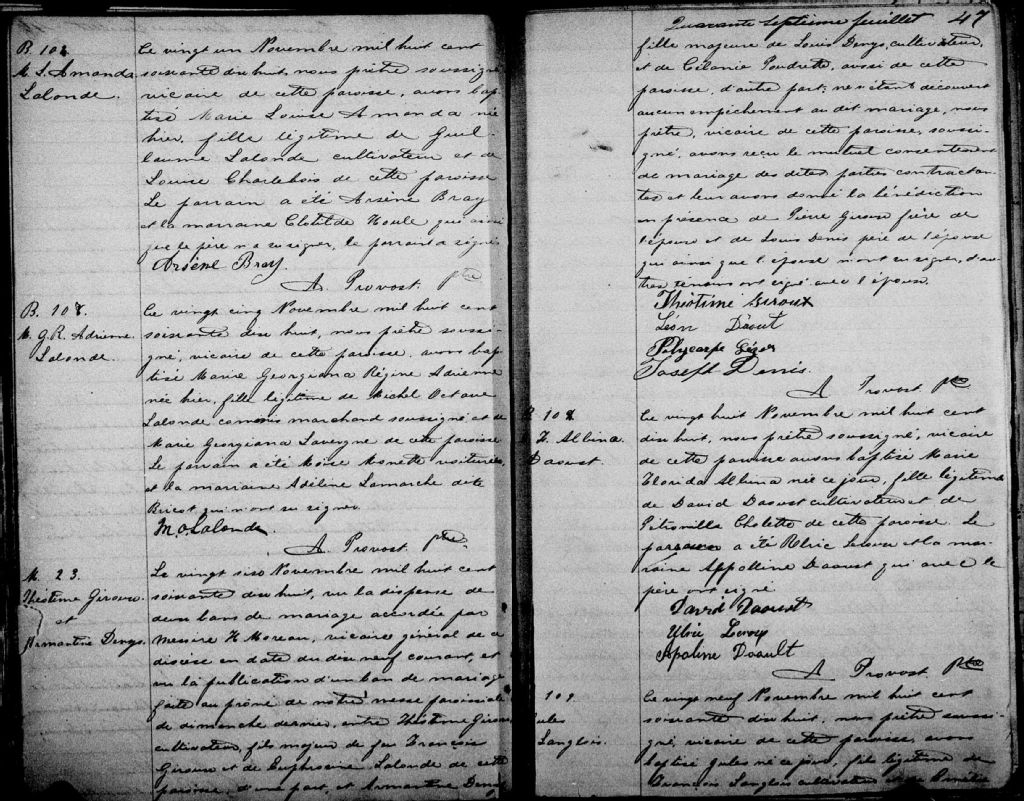 B. 108
M. L. Amanda
Lalonde.
Le vingt un Novembre mil huit cent
soixante dix huit, nous prêtre soussigné
vicaire de cette paroisse, avons bap
tisé Marie Louise Amanda née
hier, fille légitime de Guil-
laume Lalonde cultivateur et de
Louise Charlebois de cette paroisse
Le parrain a été Arsène Bray
et la marraine Clotilde Houle qui ainsi
que le père n'a su signer, le parrain a signé
Arsène Bray.
A. Provost ptre
B. 108.
M. G. R. Adrienne
Lalonde.
Le vingt cinq Novembre mil huit cent
soixante dix huit, nous prêtre soussi-
gné, vicaire de cette paroisse avons bap
tisé Marie Georgeana Régine Adrienne
née hier, fille légitime de Michel Octave
Lalonde, commis marchand soussigné et de
Marie Georgeana Lavergne de cette paroisse
Le parrain a été Moïse Monette voiturier,
et la marraine Adéline Lamarche dite
Bricot qui n'ont su signer
M. O. Lalonde.
A. Provost ptre.
M. 23.
Théotime Giroux.
et
Armantine Denys.
Le vingt six Novembre mil huit cent
soixante dix huit, vu la dispense de
deux bans de mariage accordée par
Messire H. Moreau, vicaire général de ce
diocèse en date du dix neuf courant, et
vu la publication d'un ban de mariage
faite au prône de notre messe paroissiale
de dimanche dernier, entre Théotime Giroux
cultivateur, fils majeur de feu François
Giroux et de Euphrosine Lalonde de cette
paroisse, d'une part, et Armantine Denis
Quarante septième feuillet 47
fille majeure de Louis Denys, cultivateur,
et de Célanie Poudrette, aussi de cette
paroisse, d'autre part; ne s'étant découvert
aucun empêchement au dit mariage, nous
prêtre, vicaire de cette paroisse, soussi-
gné, avons reçu le mutuel consentement
de mariage des dites parties contractan-
tes et leur avons donné la bénédiction
en présence de Pierre Giroux frère de
l'époux et de Louis Denis père de l'épouse
qui ainsi que l'épouse n'ont su signer, d'au
tres témoins ont signé avec l'époux.
Théotime Giroux
Léon Daout
Polycarpe
Joseph Denis.
A Provost ptre
B. 108
F. Albina
Daoust.
Le vingt huit Novembre mil huit cent
dix huit, nous prêtre soussigné, vicaire
de cette paroisse avons baptisé Marie
Florida Albina née ce jour, fille légitime
de David Daoust cultivateur et de
Pétronille Cholette de cette paroisse. Le
parrain a été Ulric Leroux et la mar-
raine Appolline Daoust qui avec le
père ont signé
David Daoust
Ulric Leroux
Apoline Doault
A Provost Ptre
109
Jules
Langlois.
Le vingt neuf Novembre mil huit cent
soixante dix huit, nous prêtre soussi-
gné, vicaire de cette paroisse, avons
baptisé Jules né ce jour, fils légitime de
François Langlois cultivateur et de